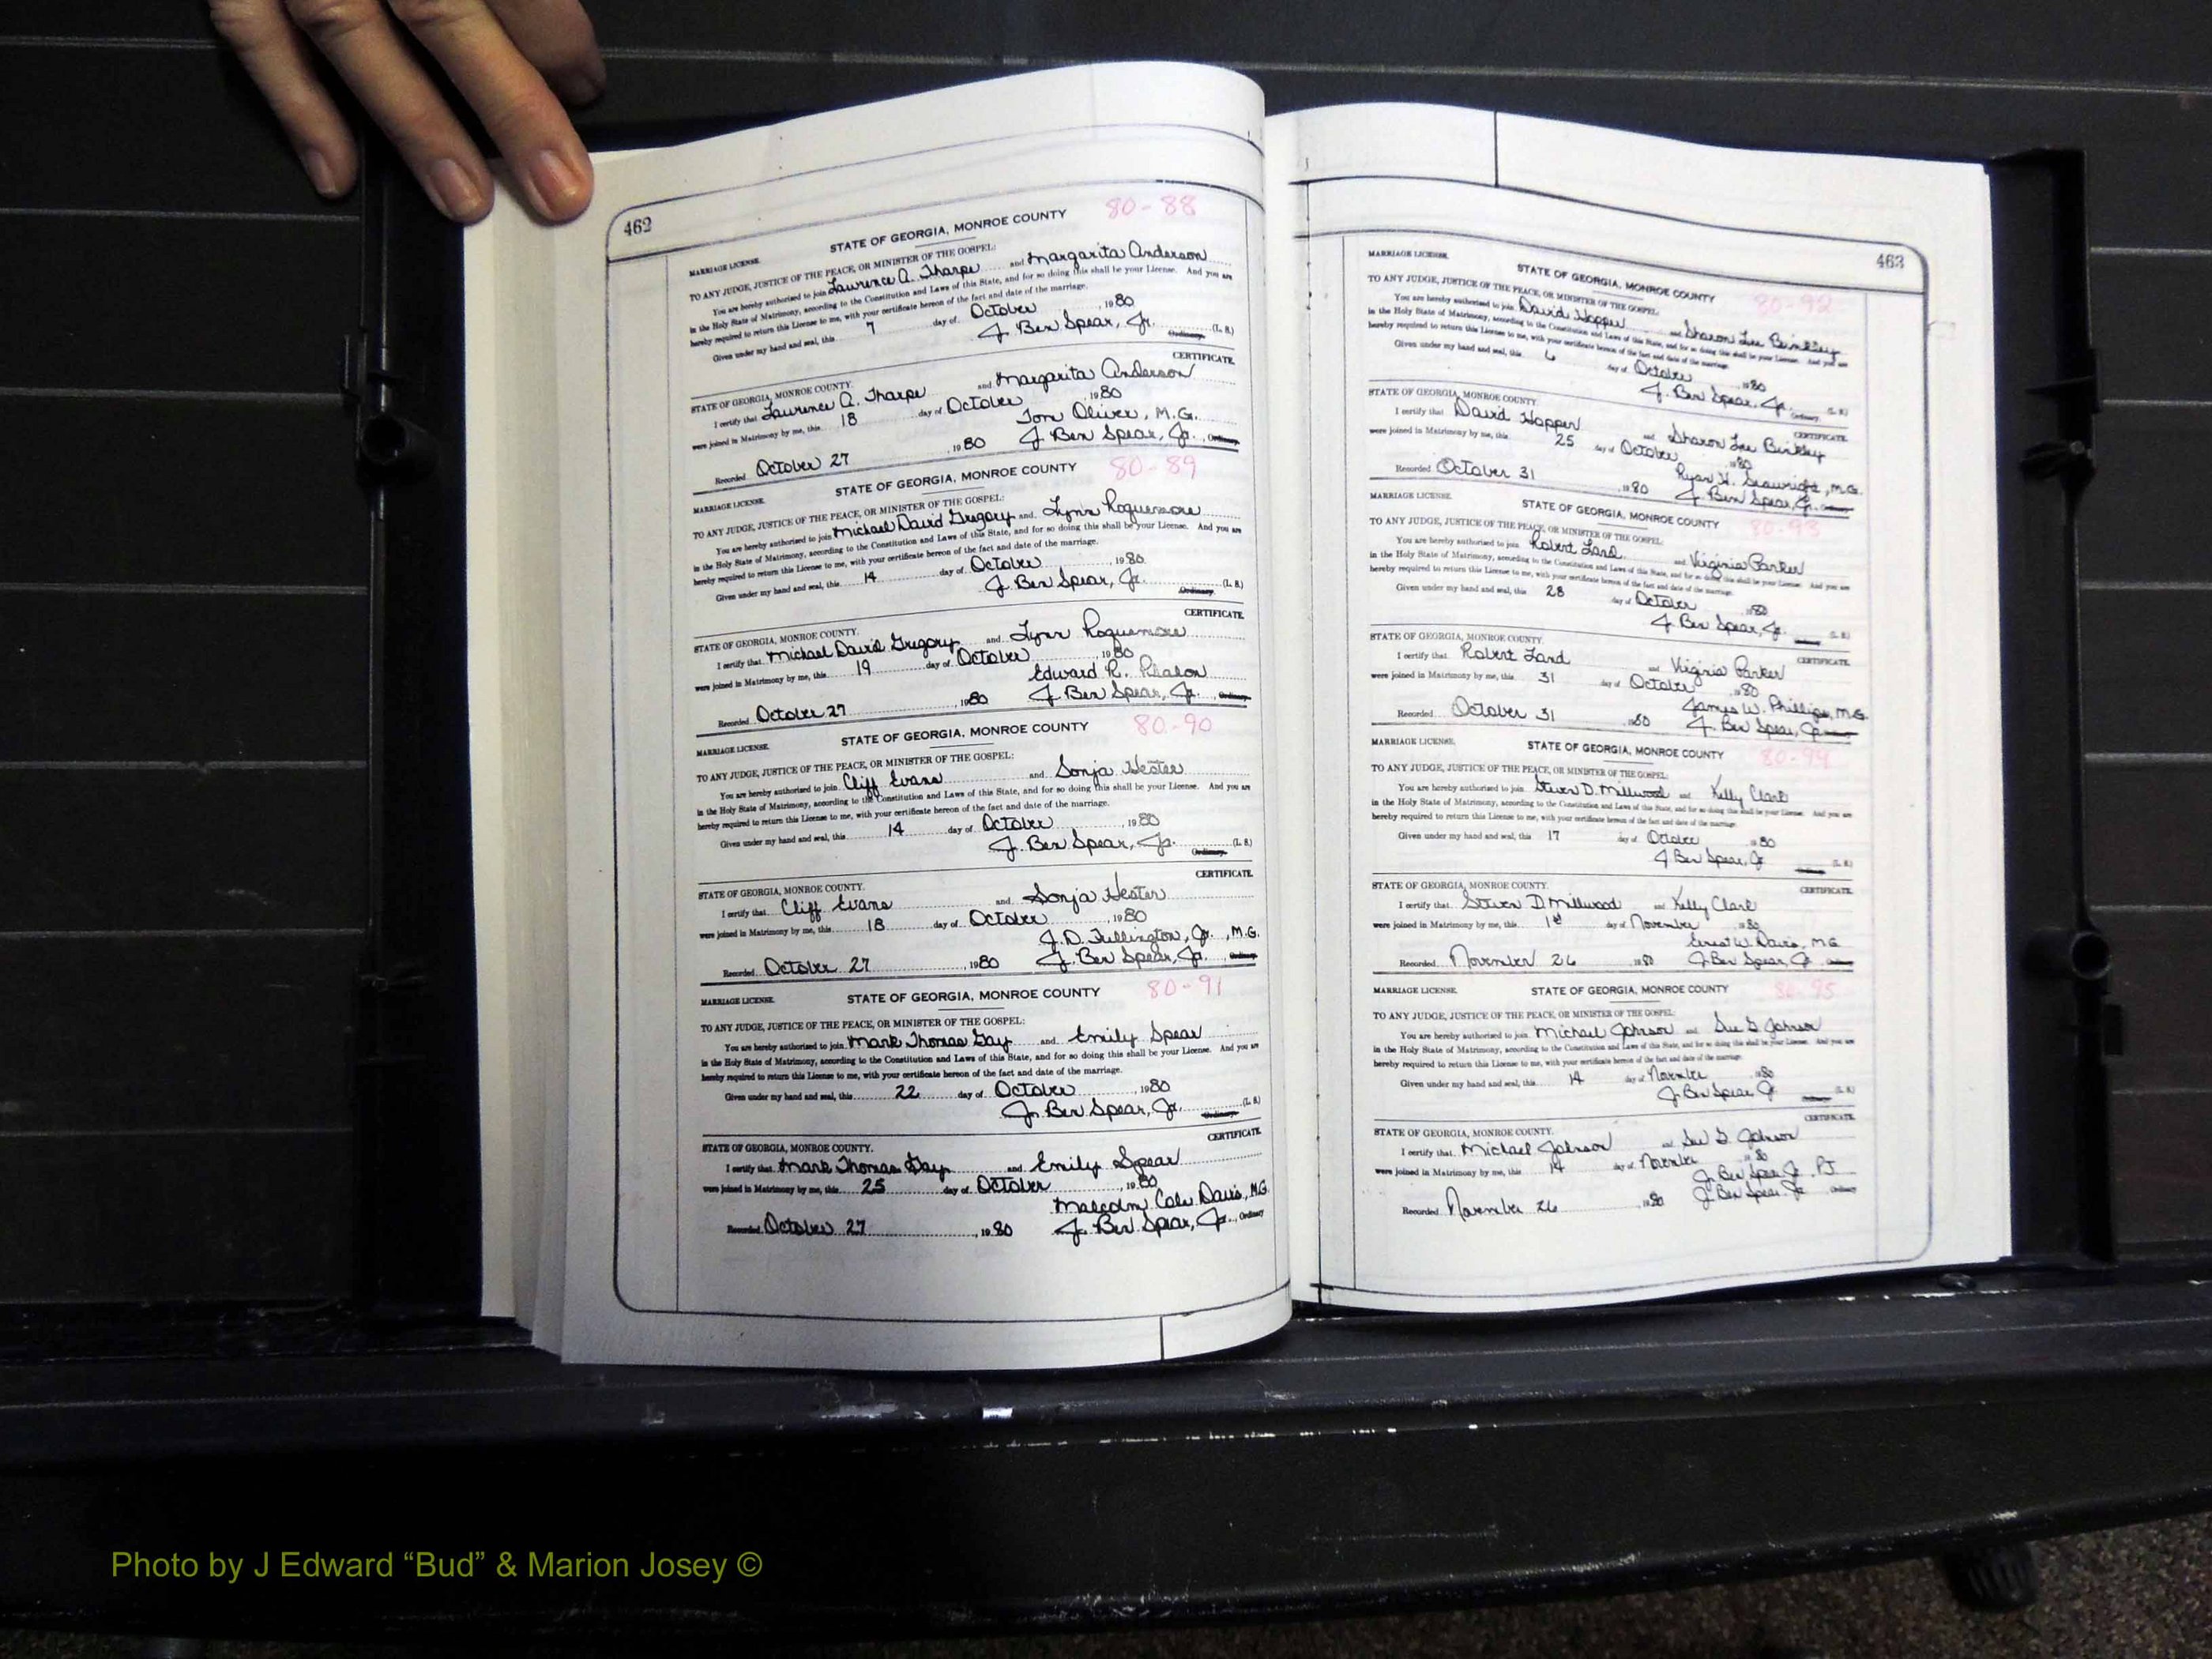 462
STATE OF GEORGIA, MONROE COUNTY 80-88
MARRIAGE LICENSE.
TO ANY JUDGE, JUSTICE OF THE PEACE, OR MINISTER OF THE GOSPEL:
You are hereby authorized to join Lawrence A. Tharpe and Margarita Anderson
in the Holy State of Matrimony, according to the Constitution and Laws of this State, and for so doing this shall be your License. And you are
hereby required to return this License to me, with your certificate hereon of the fact and date of the marriage.
Given under my hand and seal, this 7 day of October, 1980
J. Ben Spear, Jr. (L. S.)
Ordinary.
CERTIFICATE.
STATE OF GEORGIA, MONROE COUNTY.
I certify that Lawrence A. Tharpe and Margarita Anderson
were joined in Matrimony by me, this 18 day of October, 1980
Tom Oliver, M.G.
Recorded October 27, 1980 J. Ben Spear, Jr., Ordinary
STATE OF GEORGIA, MONROE COUNTY 80-89
MARRIAGE LICENSE.
TO ANY JUDGE, JUSTICE OF THE PEACE, OR MINISTER OF THE GOSPEL:
You are hereby authorized to join Michael David Gregory and Lynn Roquemore
in the Holy State of Matrimony, according to the Constitution and Laws of this State, and for so doing this shall be your License. And you are
hereby required to return this License to me, with your certificate hereon of the fact and date of the marriage.
Given under my hand and seal, this 14 day of October, 1980
J. Ben Spear, Jr. (L. S.)
Ordinary.
CERTIFICATE.
STATE OF GEORGIA, MONROE COUNTY.
I certify that Michael David Gregory and Lynn Roquemore
were joined in Matrimony by me, this 19 day of October, 1980
Edward R.
Recorded October 27, 1980 J. Ben Spear, Jr., Ordinary
STATE OF GEORGIA, MONROE COUNTY 80-90
MARRIAGE LICENSE.
TO ANY JUDGE, JUSTICE OF THE PEACE, OR MINISTER OF THE GOSPEL:
You are hereby authorized to join Cliff Evans and Sonja Hester
in the Holy State of Matrimony, according to the Constitution and Laws of this State, and for so doing this shall be your License. And you are
hereby required to return this License to me, with your certificate hereon of the fact and date of the marriage.
Given under my hand and seal, this 14 day of October, 1980
J. Ben Spear, Jr. (L. S.)
Ordinary.
CERTIFICATE.
STATE OF GEORGIA, MONROE COUNTY.
I certify that Cliff Evans and Sonja Hester
were joined in Matrimony by me, this 18 day of October, 1980
J. D. Fullington, Jr., M.G.
Recorded October 27, 1980 J. Ben Spear, Jr., Ordinary
MARRIAGE LICENSE. STATE OF GEORGIA, MONROE COUNTY 80-91
TO ANY JUDGE, JUSTICE OF THE PEACE, OR MINISTER OF THE GOSPEL:
You are hereby authorized to join Mark Thomas Gay and Emily Spear
in the Holy State of Matrimony, according to the Constitution and Laws of this State, and for so doing this shall be your License. And you are
hereby required to return this License to me, with your certificate hereon of the fact and date of the marriage.
Given under my hand and seal, this 22 day of October, 1980
J. Ben Spear, Jr. (L. S.)
Ordinary.
CERTIFICATE.
STATE OF GEORGIA, MONROE COUNTY.
I certify that Mark Thomas Gay and Emily Spear
were joined in Matrimony by me, this 25 day of October, 1980
Malcolm Cole Davis, M.G.
Recorded October 27, 1980 J. Ben Spear, Jr., Ordinary
463
MARRIAGE LICENSE. STATE OF GEORGIA, MONROE COUNTY 80-92
TO ANY JUDGE, JUSTICE OF THE PEACE, OR MINISTER OF THE GOSPEL:
You are hereby authorized to join David Hopper and Sharon Lee Binkley
in the Holy State of Matrimony, according to the Constitution and Laws of this State, and for so doing this shall be your License. And you are
hereby required to return this License to me, with your certificate hereon of the fact and date of the marriage.
Given under my hand and seal, this 6 day of October 1980
J. Ben Spear, Jr. (L. S.)
Ordinary.
STATE OF GEORGIA, MONROE COUNTY. CERTIFICATE.
I certify that David Hopper and Sharon Lee Binkley
were joined in Matrimony by me, this 25 day of October 1980
Ryan H. Seawright, M.G.
Recorded October 31, 1980 J. Ben Spear, Jr. Ordinary
MARRIAGE LICENSE. STATE OF GEORGIA, MONROE COUNTY 80-93
TO ANY JUDGE, JUSTICE OF THE PEACE, OR MINISTER OF THE GOSPEL:
You are hereby authorized to join Robert Land and Virginia Parker
in the Holy State of Matrimony, according to the Constitution and Laws of this State, and for so doing this shall be your License. And you are
hereby required to return this License to me, with your certificate hereon of the fact and date of the marriage.
Given under my hand and seal, this 28 day of October 1980
J. Ben Spear, Jr. (L. S.)
STATE OF GEORGIA, MONROE COUNTY. CERTIFICATE.
I certify that Robert Land and Virginia Parker
were joined in Matrimony by me, this 31 day of October 1980
James W. Phillips, M.G.
Recorded October 31, 1980 J. Ben Spear, Jr.
MARRIAGE LICENSE. STATE OF GEORGIA, MONROE COUNTY 80-94
TO ANY JUDGE, JUSTICE OF THE PEACE, OR MINISTER OF THE GOSPEL:
You are hereby authorized to join Steven D. Millwood and Kelly Clark
in the Holy State of Matrimony, according to the Constitution and Laws of this State, and for so doing this shall be your License. And you are
hereby required to return this License to me, with your certificate hereon of the fact and date of the marriage.
Given under my hand and seal, this 17 day of October 1980
J Ben Spear, Jr (L. S.)
STATE OF GEORGIA, MONROE COUNTY. CERTIFICATE.
I certify that Steven D. Millwood and Kelly Clark
were joined in Matrimony by me, this 1st day of November 1980
W. Davis, M.G.
Recorded November 26, 1980 J. Ben Spear, Jr
MARRIAGE LICENSE. STATE OF GEORGIA, MONROE COUNTY 80-95
TO ANY JUDGE, JUSTICE OF THE PEACE, OR MINISTER OF THE GOSPEL:
You are hereby authorized to join Michael Johnson and Sue G. Johnson
in the Holy State of Matrimony, according to the Constitution and Laws of this State, and for so doing this shall be your License. And you are
hereby required to return this License to me, with your certificate hereon of the fact and date of the marriage.
Given under my hand and seal, this 14 day of November 1980
J. Ben Spear, Jr (L. S.)
CERTIFICATE.
STATE OF GEORGIA, MONROE COUNTY.
I certify that Michael Johnson and Sue G. Johnson
were joined in Matrimony by me, this 14 day of November 1980
J. Ben Spear Jr. PJ
Recorded November 26, 1980 J. Ben Spear Jr Ordinary
Photo by J Edward “Bud” & Marion Josey ©